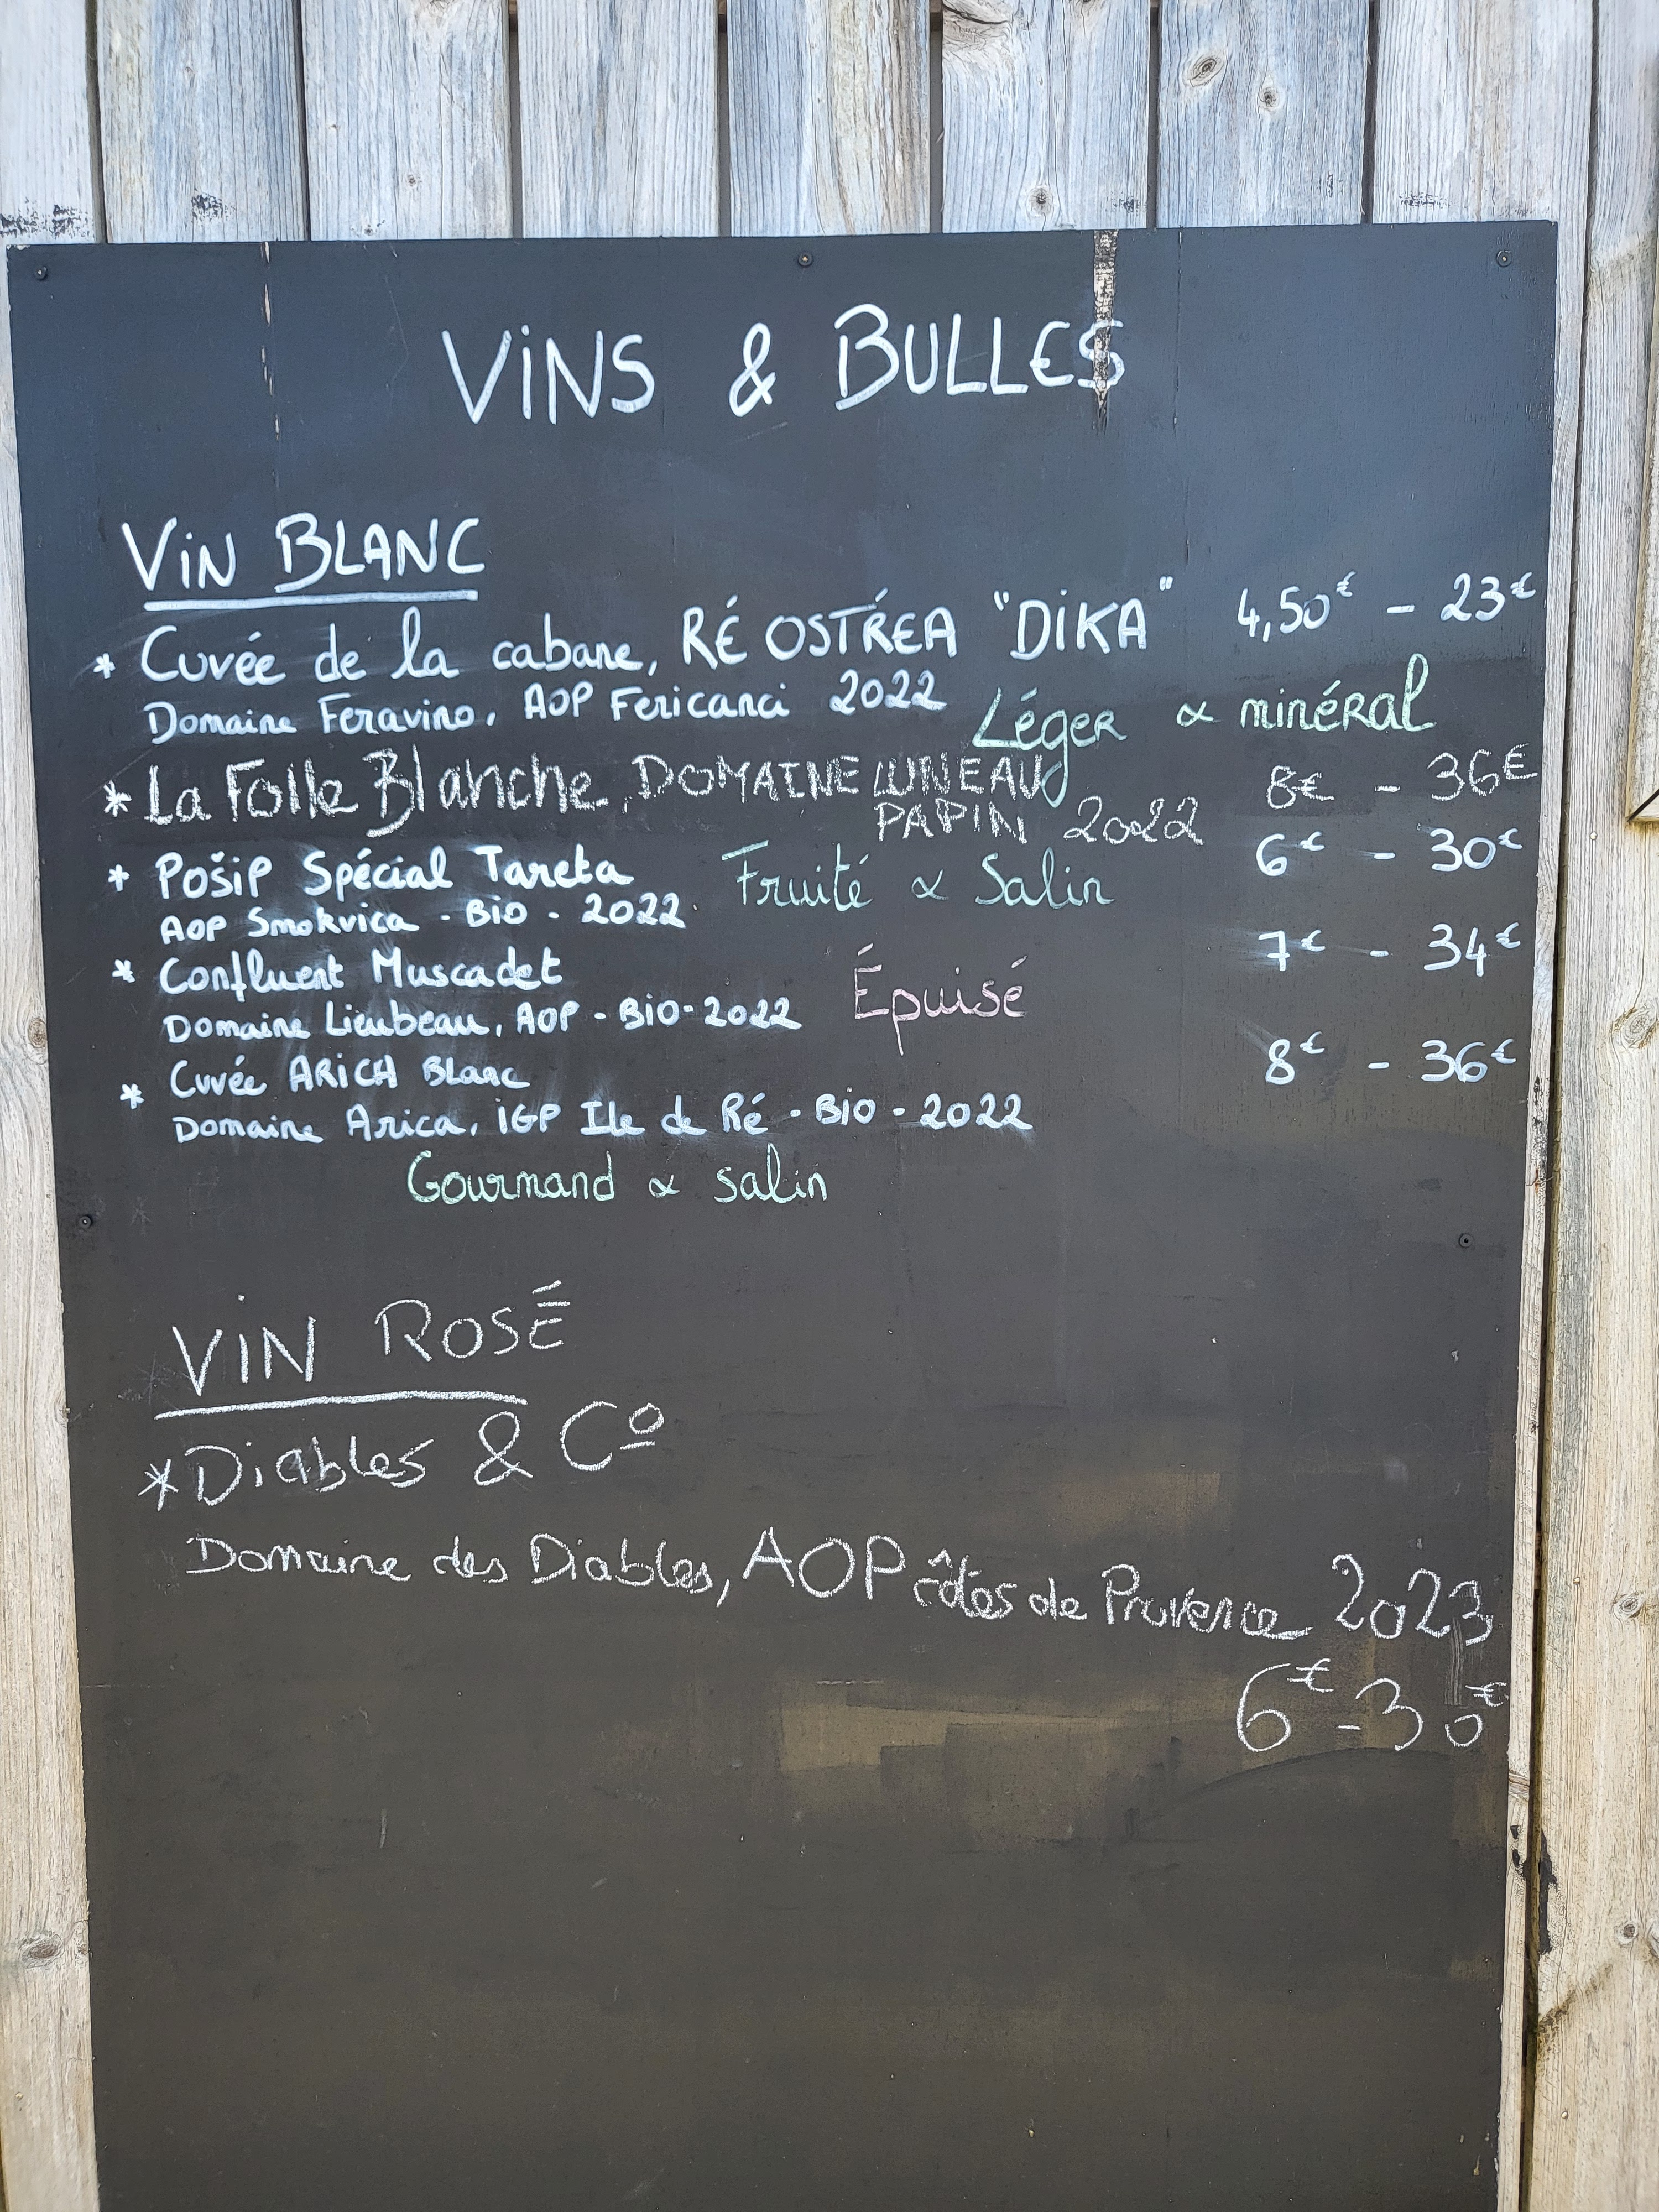 VINS & BULLES
VIN BLANC
* Cuvée de la cabane, RÉ OSTRÉA "DIKA" 4,50€ - 23€
Domaine Feravino, AOP Fericanci 2022 Léger & minéral
* La Folle Blanche, DOMAINE LUNEAU 8€ - 36€
PAPIN 2022
* Pošip Spécial Tareta Fruité & Salin 6€ - 30€
AOP Smokvica - Bio - 2022
* Confluent Muscadet Épuisé 7€ - 34€
Domaine Lieubeau, AOP - BIO - 2022
* Cuvée ARICA Blanc 8€ - 36€
Domaine Arica, IGP Ile de Ré - Bio - 2022
Gourmand & salin
VIN ROSÉ
* Diables & Cº
Domaine des Diables, AOP côtes de Provence 2023
6€ - 30€